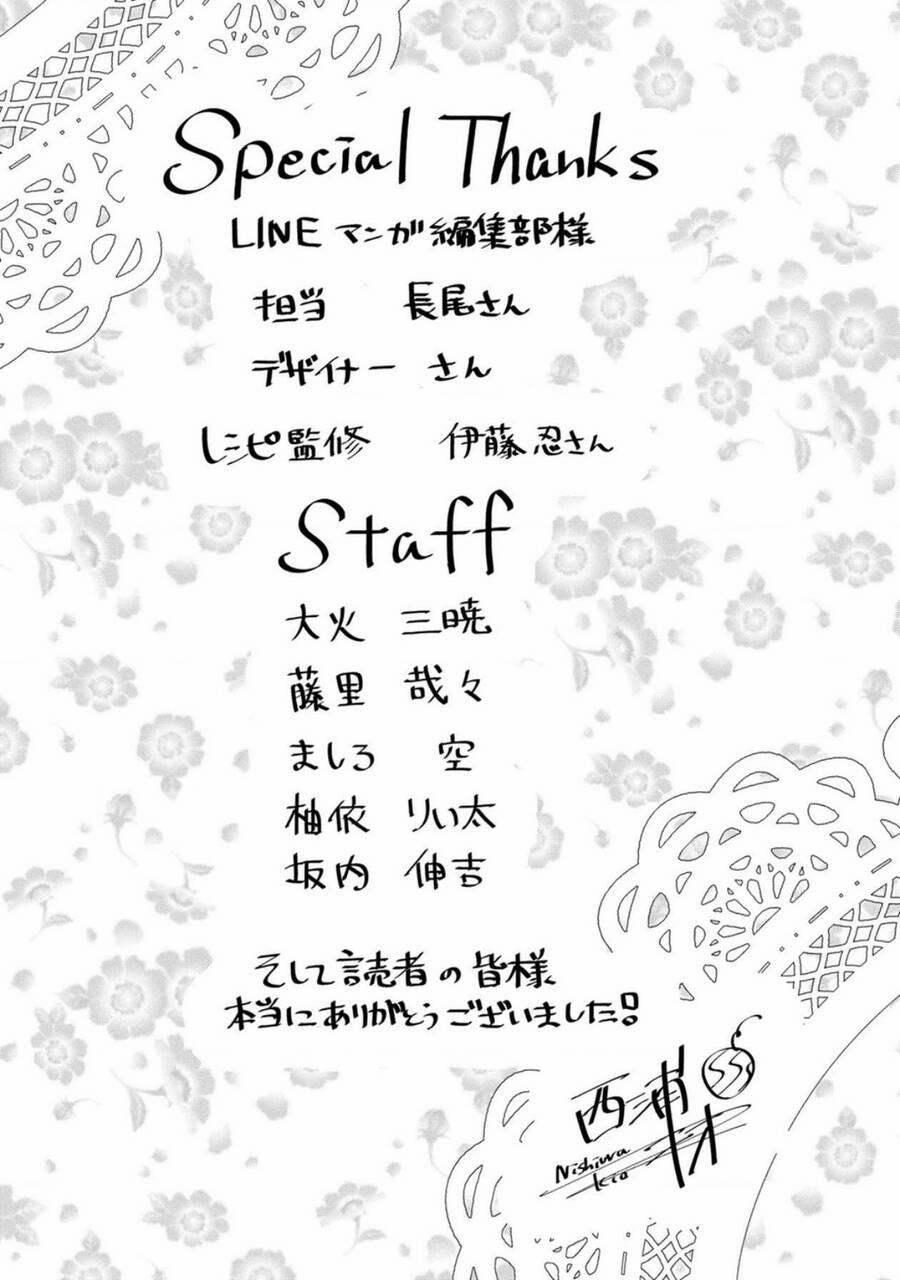 Special Thanks
LINE マンガ編集部様
担当 長尾さん
デザイナー さん
レシピ監修 伊藤忍さん
Staff
大火 三暁
藤里 哉々
ましろ 空
柚依 りい太
坂内 伸吉
そして読者の皆様
本当にありがとうございました!!
西浦キオ
Nishiura
Kio